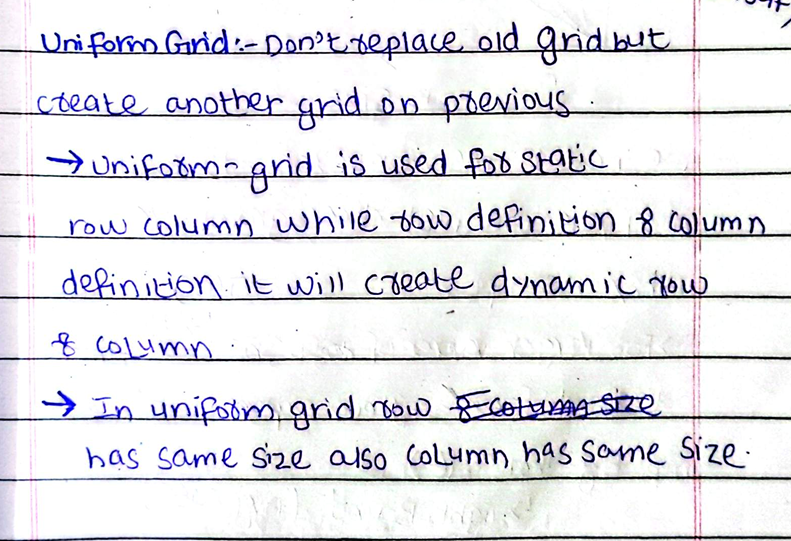 Uniform Grid:- Don't replace old grid but
create another grid on previous.
→ uniform-grid is used for static
row column while row definition & column
definition it will create dynamic row
& column.
→ In uniform grid row & column size
has same size also column has same size.